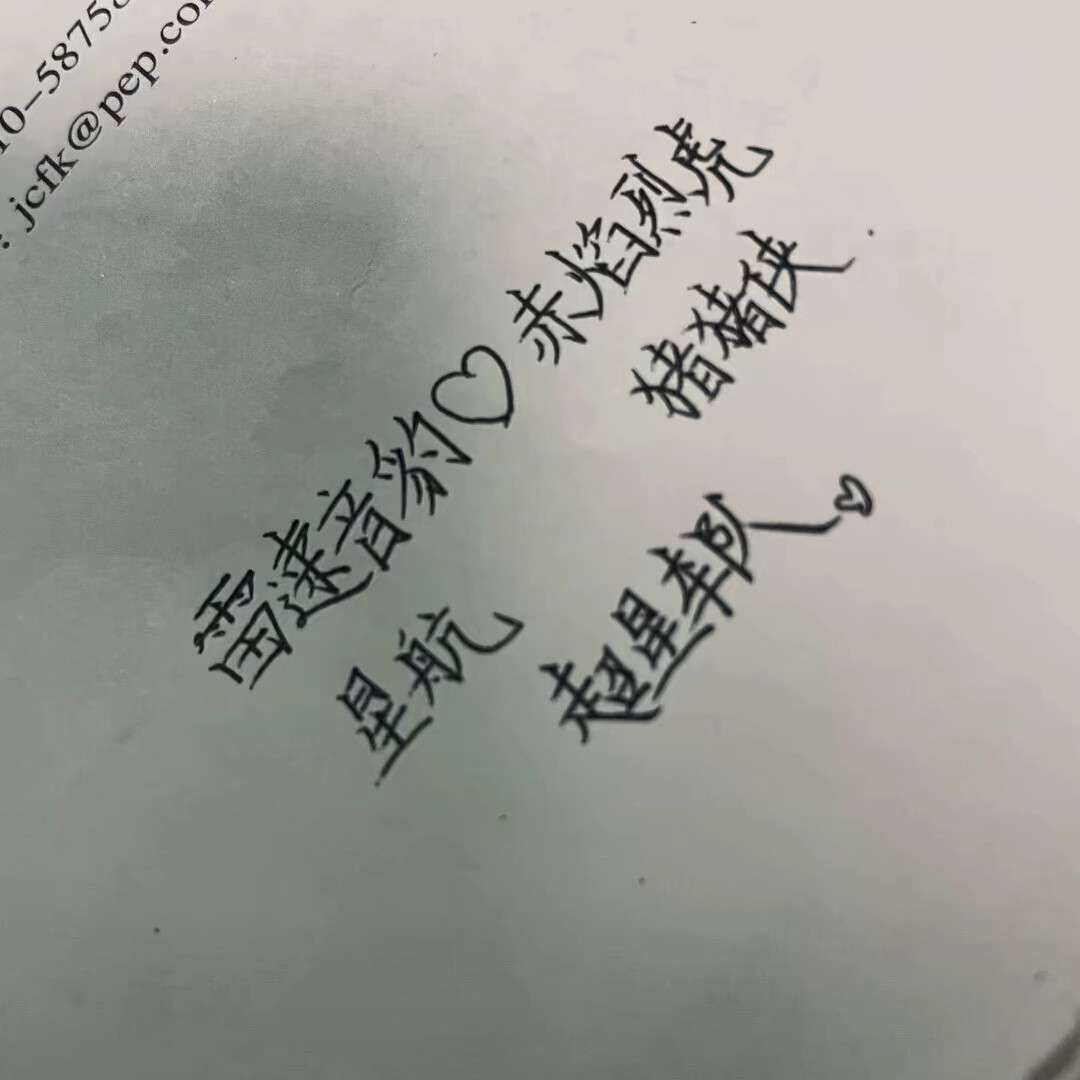 10-58758
: jcfk@pep.co
雷速音豹♡赤焰烈虎
星航 猪猪侠
超星车队♡